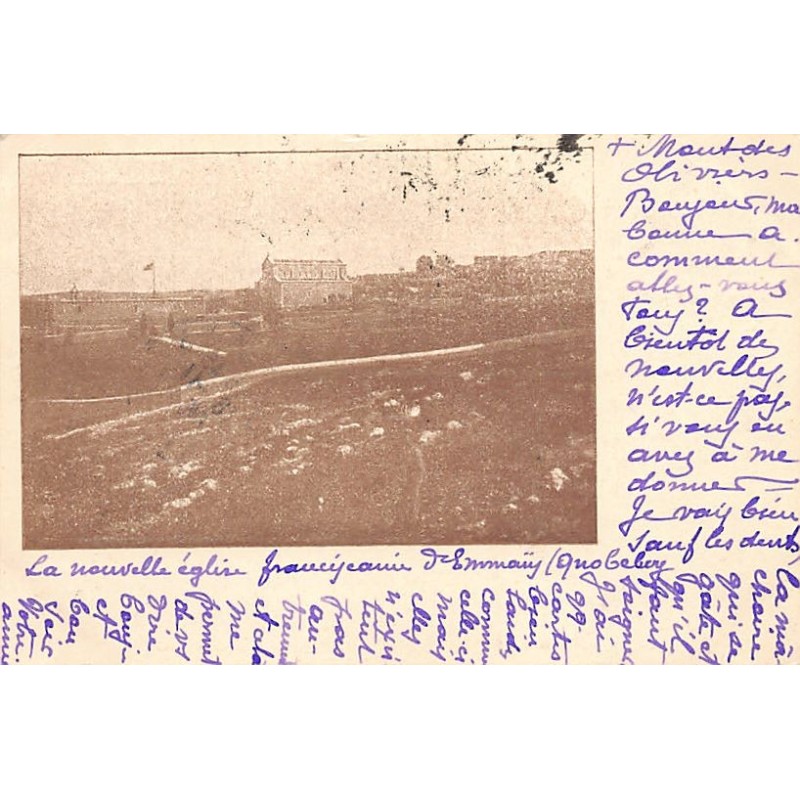 + Mont des
Oliviers –
Bonjour, ma
bonne A.
comment
allez-vous
Tous? A
bientôt des
nouvelles,
n'est-ce pas,
si vous en
avez à me
donner –
Je vais bien,
sauf les dents,
La nouvelle église franciscaine d'Emmaüs (Qoubeibeh
la mâ-
choire
qui se
gâte et
qu'il
faut
soigner
J'ai
qq.
cartes
bien
laides
comme
celle-ci
mais
elles
n'exis
tent
pas
au-
trem
et cla
me
permet
de vs
Dire
Bonj-
et
bon
soir
Votre
amie